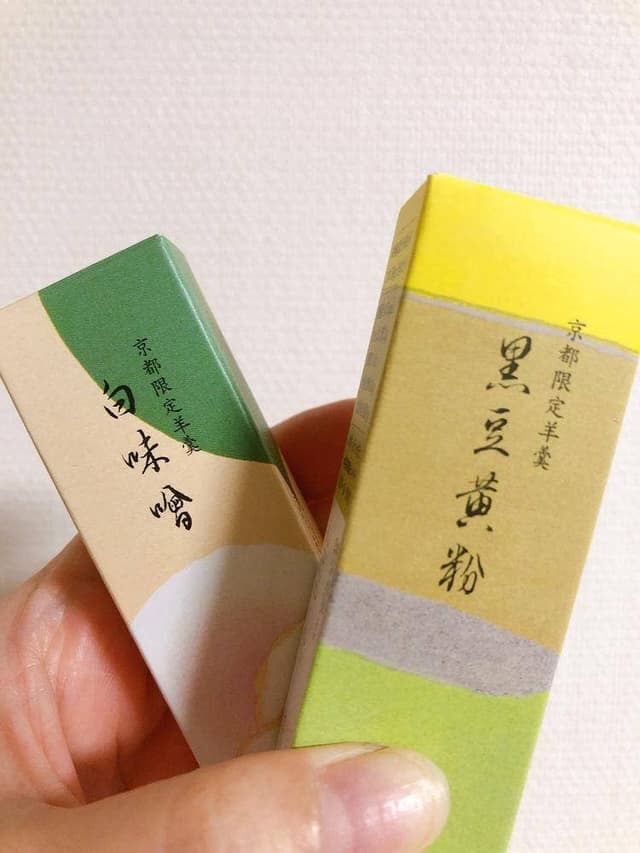 京都限定羊羹
白味噌
京都限定羊羹
黒豆黄粉